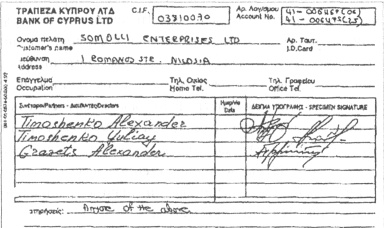 ΤΡΑΠΕΖΑ ΚΥΠΡΟΥ ΛΤΔ
BANK OF CYPRUS LTD
C.I.F.
03810070
Αρ. Λογ/σμου
Account No.
Ονομα πελάτη
Customer's name
SOMOLLI ENTERPRISES LTD
Αρ. Ταυτ.
I.D.Card
Διεύθυνση
Address
1 ROMANOS STR. NICOSIA
Επάγγελμα
Occupation
Τηλ. Οικίας
Home Tel.
Τηλ. Γραφείου
Office Tel.
Συνέταιροι/Partners - Διευθυντές/Directors
Ημερ/νία
Date
ΔΕΙΓΜΑ ΥΠΟΓΡΑΦΗΣ - SPECIMEN SIGNATURE
Timoshenko Alexander
Timoshenko
Gravets Alexander
of the above